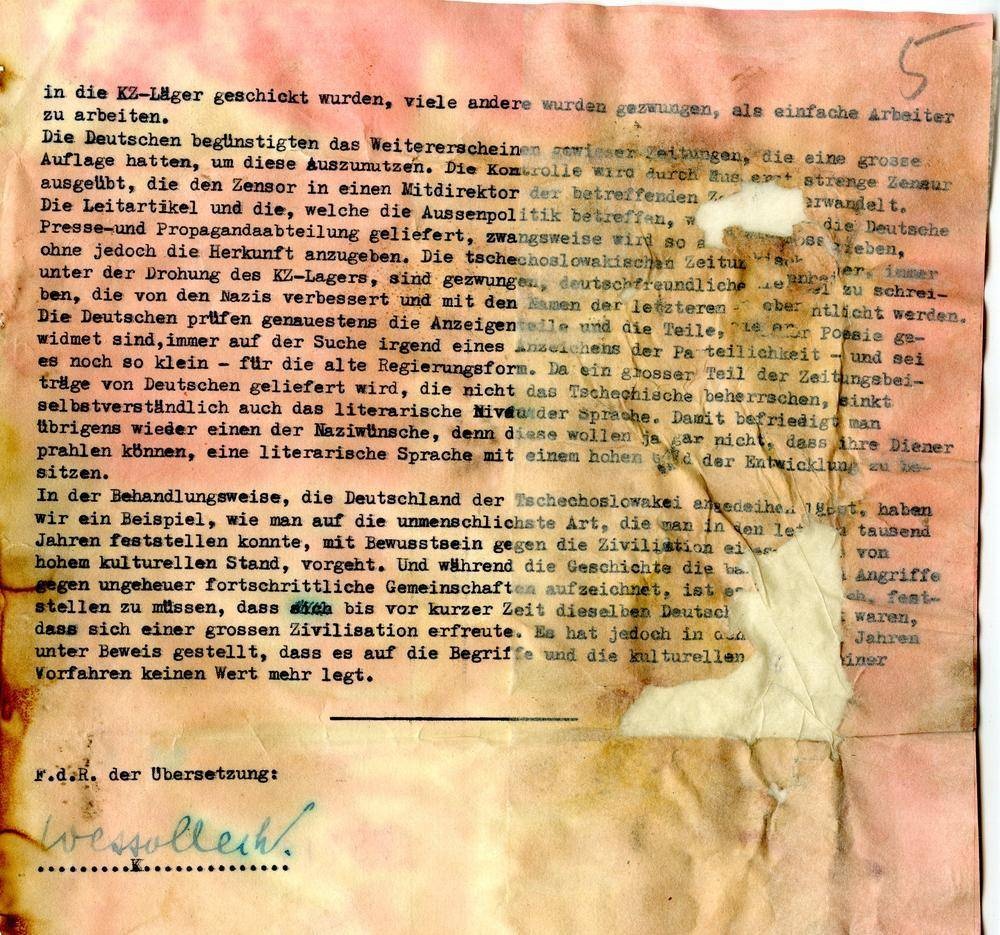 5
in die KZ-Läger geschickt wurden, viele andere wurden gezwungen, als einfache Arbeiter
zu arbeiten.
Die Deutschen begünstigten das Weitererscheinen gewisser Zeitungen, die eine grosse
Auflage hatten, um diese Auszunutzen. Die Kontrolle wird durch strenge Zensur
ausgeübt, die den Zensor in einen Mitdirektor der betreffenden erwandelt.
Die Leitartikel und die, welche die Aussenpolitik betreffen, die Deutsche
Presse-und Propagandaabteilung geliefert, zwangsweise wird so
ohne jedoch die Herkunft anzugeben. Die tschechoslowakischen immer
unter der Drohung des KZ-Lagers, sind gezwungen, deutschfreundliche zu schrei-
ben, die von den Nazis verbessert und mit den Namen der letzteren ntlicht werden.
Die Deutschen prüfen genauestens die Anzeigenteile und die Teile, die der Poesie ge-
widmet sind,immer auf der Suche irgend eines Anzeichens der Parteilichkeit - und sei
es noch so klein - für die alte Regierungsform. Da ein grosser Teil der Zeitungsbei-
träge von Deutschen geliefert wird, die nicht das Tschechische beherrschen, sinkt
selbstverständlich auch das literarische Niveau der Sprache. Damit befriedigt man
übrigens wieder einen der Naziwünsche, denn diese wollen ja gar nicht, dass ihre Diener
prahlen können, eine literarische Sprache mit einem hohen der Entwicklung zu be-
sitzen.
In der Behandlungsweise, die Deutschland der Tschechoslowakei angedeihen lässt, haben
wir ein Beispiel, wie man auf die unmenschlichste Art, die man in den tausend
Jahren feststellen konnte, mit Bewusstsein gegen die von
hohem kulturellen Stand, vorgeht. Und während die Geschichte die Angriffe
gegen ungeheuer fortschrittliche Gemeinschaften aufzeichnet, ist fest-
stellen zu müssen, dass bis vor kurzer Zeit dieselben waren,
dass sich einer grossen Zivilisation erfreute. Es hat jedoch in Jahren
unter Beweis gestellt, dass es auf die Begriffe und die kulturellen
Vorfahren keinen Wert mehr legt.
F.d.R. der Übersetzung:
K